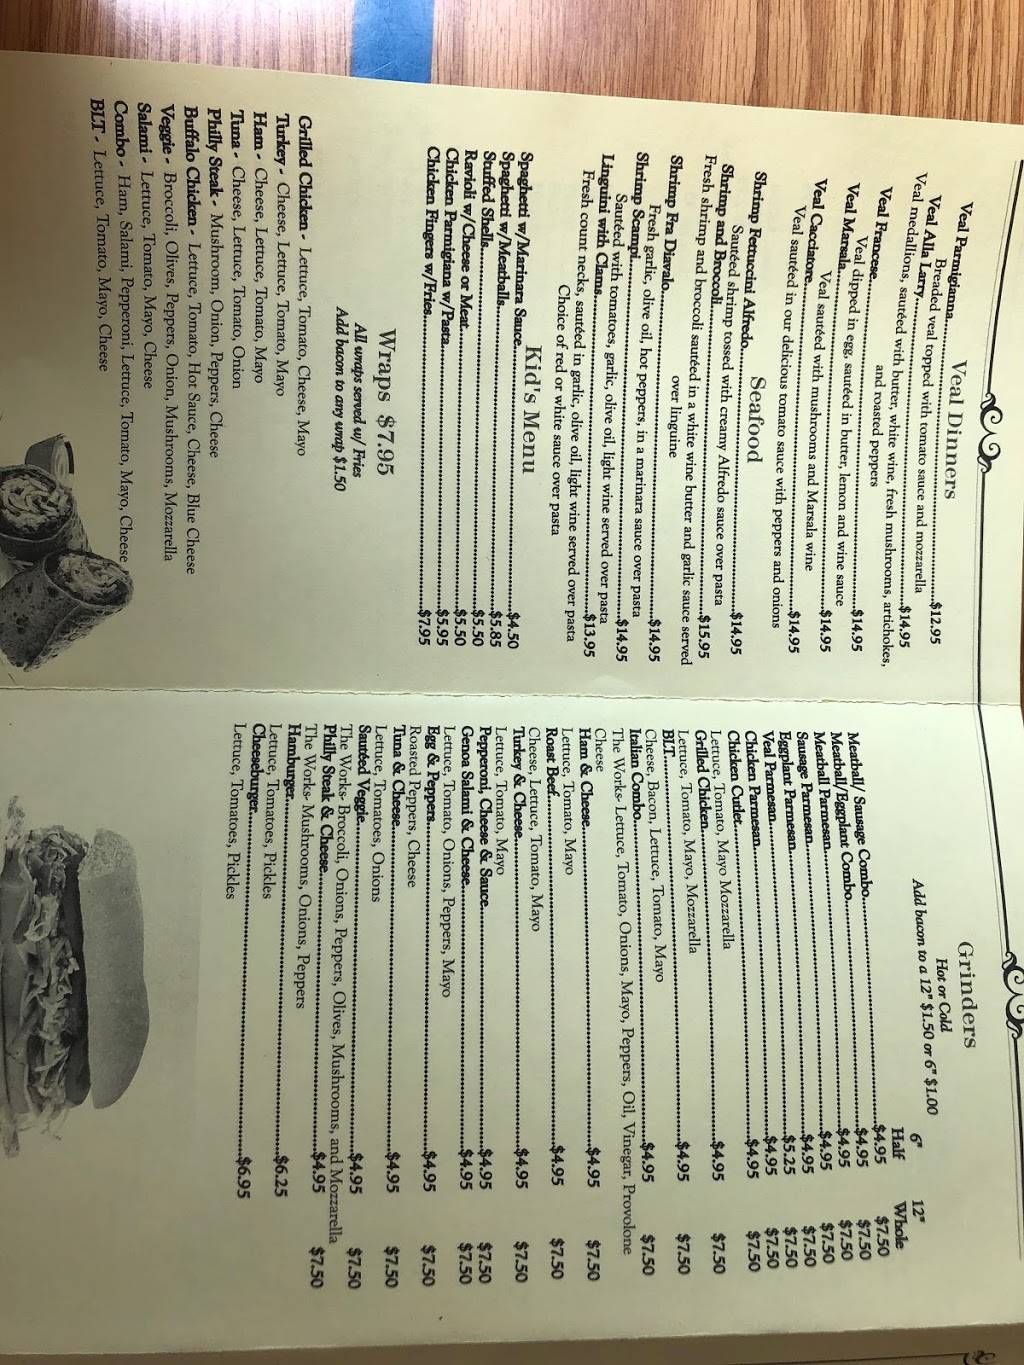 Veal Dinners
Veal Parmigianna........$12.95
Breaded veal topped with tomato sauce and mozzarella
Veal Alla Larry........$14.95
Veal medallions, sautéed with butter, white wine, fresh mushrooms, artichokes,
and roasted peppers
Veal Francese........$14.95
Veal dipped in egg, sautéed in butter, lemon and wine sauce
Veal Marsala........$14.95
Veal sautéed with mushrooms and Marsala wine
Veal Cacciatore........$14.95
Veal sautéed in our delicious tomato sauce with peppers and onions
Seafood
Shrimp Fettuccini Alfredo........$14.95
Sautéed shrimp tossed with creamy Alfredo sauce over pasta
Shrimp and Broccoli........$15.95
Fresh shrimp and broccoli sautéed in a white wine butter and garlic sauce served
over linguine
Shrimp Fra Diavalo........$14.95
Fresh garlic, olive oil, hot peppers, in a marinara sauce over pasta
Shrimp Scampi........$14.95
Sautéed with tomatoes, garlic, olive oil, light wine served over pasta
Linguini with Clams........$13.95
Fresh count necks, sautéed in garlic, olive oil, light wine served over pasta
Choice of red or white sauce over pasta
Kid's Menu
Spaghetti w/Marinara Sauce........$4.50
Spaghetti w/Meatballs........$5.85
Stuffed Shells........$5.50
Ravioli w/Cheese or Meat........$5.50
Chicken Parmigiana w/Pasta........$5.95
Chicken Fingers w/Fries........$7.95
Wraps $7.95
All wraps served w/ Fries
Add bacon to any wrap $1.50
Grilled Chicken - Lettuce, Tomato, Cheese, Mayo
Turkey - Cheese, Lettuce, Tomato, Mayo
Ham - Cheese, Lettuce, Tomato, Mayo
Tuna - Cheese, Lettuce, Tomato, Onion
Philly Steak - Mushroom, Onion, Peppers, Cheese
Buffalo Chicken - Lettuce, Tomato, Hot Sauce, Cheese, Blue Cheese
Veggie - Broccoli, Olives, Peppers, Onion, Mushrooms, Mozzarella
Salami - Lettuce, Tomato, Mayo, Cheese
Combo - Ham, Salami, Pepperoni, Lettuce, Tomato, Mayo, Cheese
BLT - Lettuce, Tomato, Mayo, Cheese
Grinders
Hot or Cold
Add bacon to a 12" $1.50 or 6" $1.00
6" 12"
Half Whole
Meatball/ Sausage Combo........$4.95 $7.50
Meatball/Eggplant Combo........$4.95 $7.50
Meatball Parmesan........$4.95 $7.50
Sausage Parmesan........$4.95 $7.50
Eggplant Parmesan........$4.95 $7.50
Veal Parmesan........$5.25 $7.50
Chicken Parmesan........$4.95 $7.50
Chicken Cutlet........$4.95 $7.50
Lettuce, Tomato, Mayo Mozzarella
Grilled Chicken........$4.95 $7.50
Lettuce, Tomato, Mayo, Mozzarella
BLT........$4.95 $7.50
Cheese, Bacon, Lettuce, Tomato, Mayo
Italian Combo........$4.95 $7.50
The Works- Lettuce, Tomato, Onions, Mayo, Peppers, Oil, Vinegar, Provolone
Cheese
Ham & Cheese........$4.95 $7.50
Lettuce, Tomato, Mayo
Roast Beef........$4.95 $7.50
Cheese, Lettuce, Tomato, Mayo
Turkey & Cheese........$4.95 $7.50
Lettuce, Tomato, Mayo
Pepperoni, Cheese & Sauce........$4.95 $7.50
Genoa Salami & Cheese........$4.95 $7.50
Lettuce, Tomato, Onions, Peppers, Mayo
Egg & Peppers........$4.95 $7.50
Roasted Peppers, Cheese
Tuna & Cheese........$4.95 $7.50
Lettuce, Tomatoes, Onions
Sautéed Veggie........$4.95 $7.50
The Works- Broccoli, Onions, Peppers, Olives, Mushrooms, and Mozzarella
Philly Steak & Cheese........$4.95 $7.50
The Works- Mushrooms, Onions, Peppers
Hamburger........$6.25
Lettuce, Tomatoes, Pickles
Cheeseburger........$6.95
Lettuce, Tomatoes, Pickles